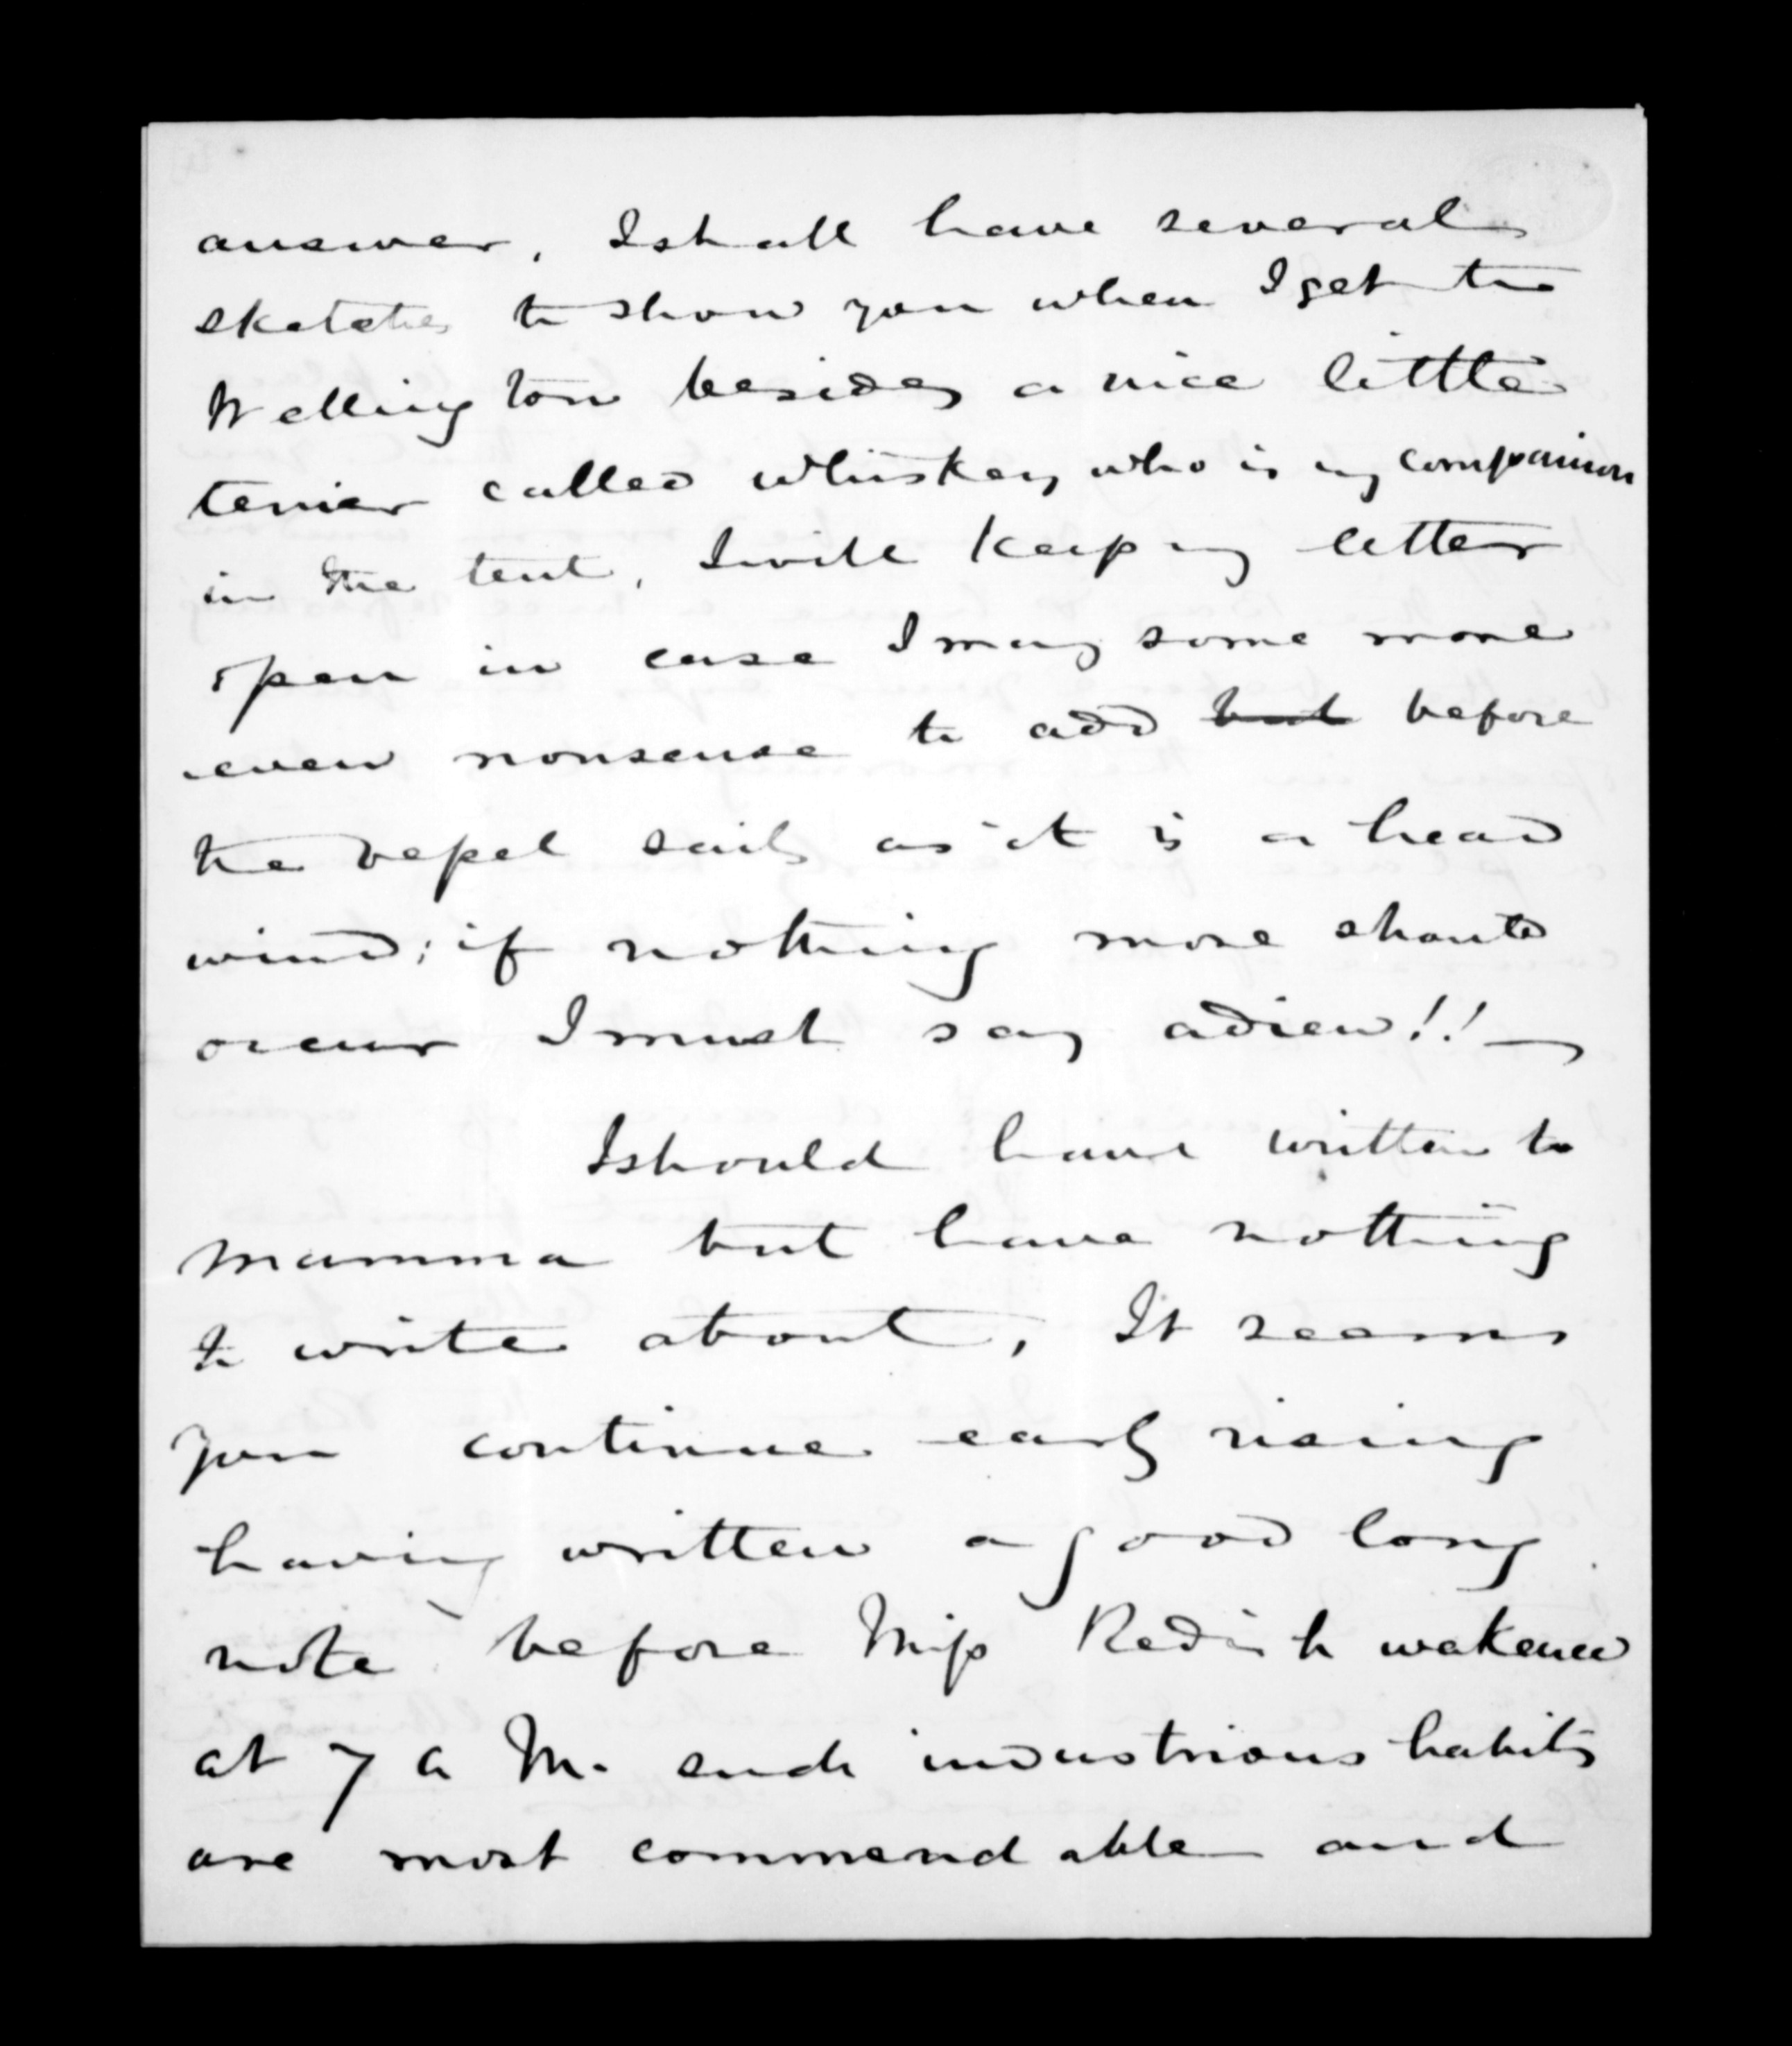 answer, I shall have several
sketches to show you when I get to
Wellington besides a nice little
terrier called Whiskey who is my companion
in the tent, I will keep my letter
open in case I may some more
even nonsense to add but before
the vessel sails as it is a head
wind; if nothing more should
occur I must say adieu!!
I should have written to
mamma but have nothing
to write about, It seems
you continue early rising
having written a good long
note before Miss Redish wakened
at 7 a M. such industrious habits
are most commendable and